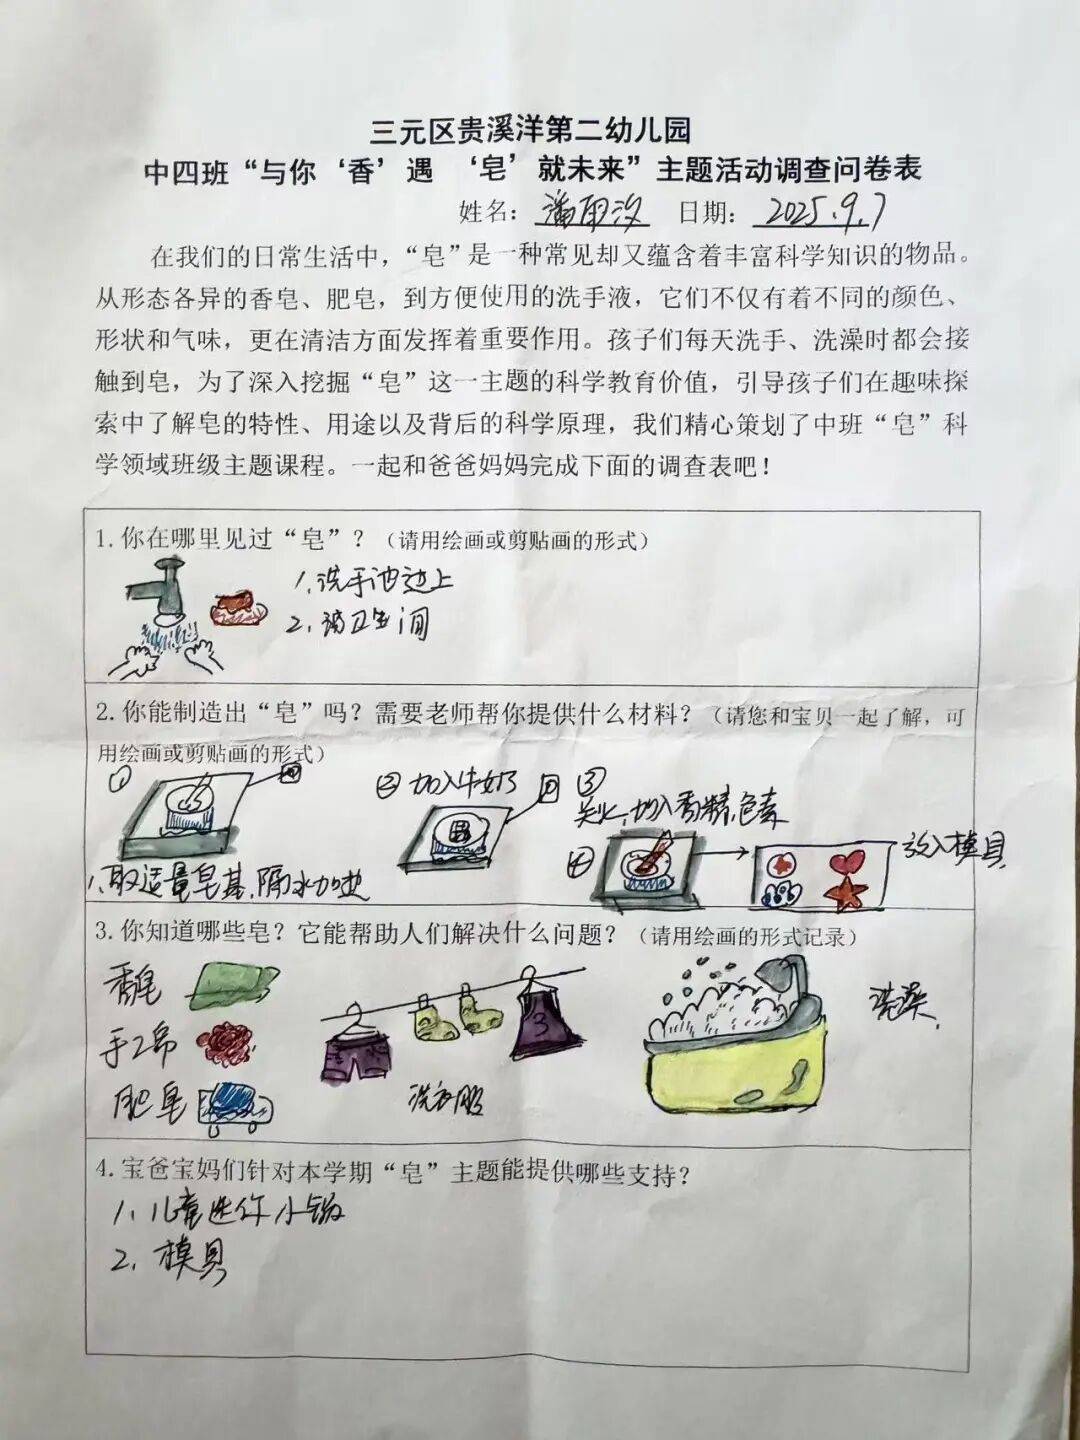 三元区贵溪洋第二幼儿园
中四班“与你‘香’遇 ‘皂’就未来”主题活动调查问卷表
姓名：潘雨汐 日期：2025.9.7
在我们的日常生活中，“皂”是一种常见却又蕴含着丰富科学知识的物品。
从形态各异的香皂、肥皂，到方便使用的洗手液，它们不仅有着不同的颜色、
形状和气味，更在清洁方面发挥着重要作用。孩子们每天洗手、洗澡时都会接
触到皂，为了深入挖掘“皂”这一主题的科学教育价值，引导孩子们在趣味探
索中了解皂的特性、用途以及背后的科学原理，我们精心策划了中班“皂”科
学领域班级主题课程。一起和爸爸妈妈完成下面的调查表吧！
1.你在哪里见过“皂”？（请用绘画或剪贴画的形式）
1、洗手池边上
2、卫生间
2.你能制造出“皂”吗？需要老师帮你提供什么材料？（请您和宝贝一起了解，可
用绘画或剪贴画的形式）
①
②加入牛奶
③
关火，加入香精、色素
④
放入模具
1、取适量皂基，隔水加热
3.你知道哪些皂？它能帮助人们解决什么问题？（请用绘画的形式记录）
香皂
手工皂
肥皂
3
洗衣服
洗澡
4.宝爸宝妈们针对本学期“皂”主题能提供哪些支持？
1、儿童迷你小锅
2、模具